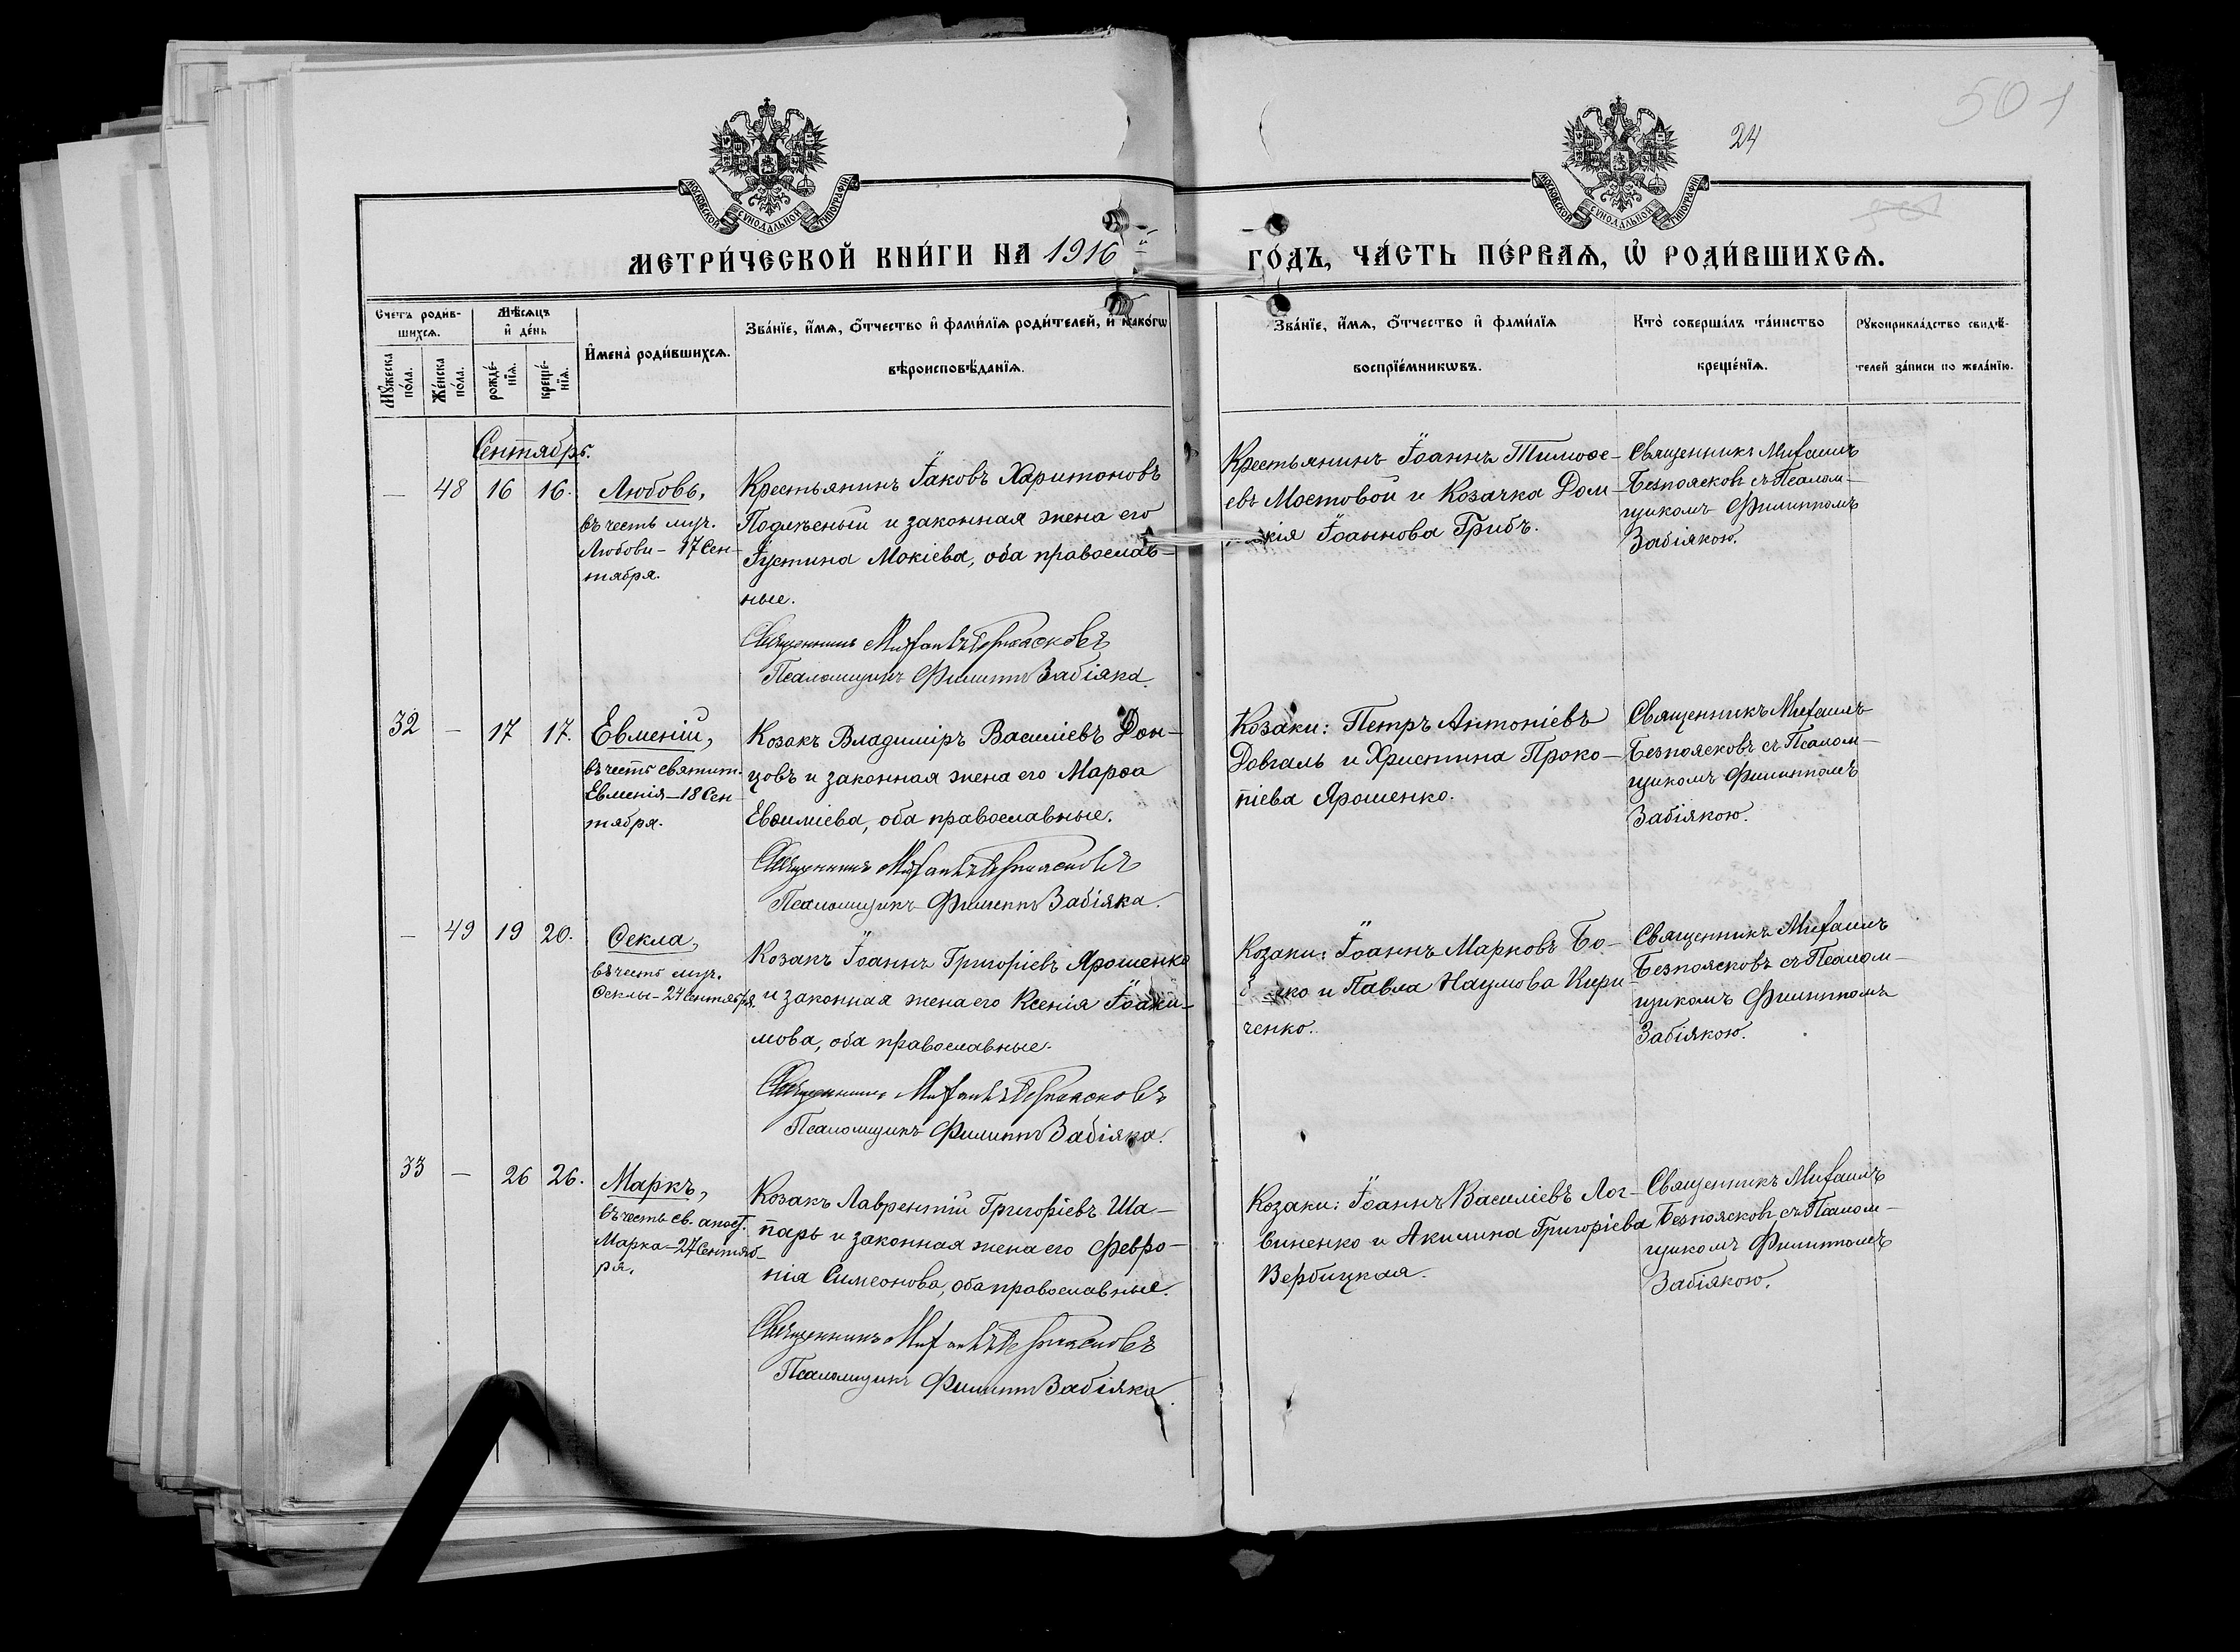 501
24
МОСКОВСКОЙ СѴНОДАЛЬНОЙ ТИПОГРАФІИ
МОСКОВСКОЙ СѴНОДАЛЬНОЙ ТИПОГРАФІИ
МЕТРИ́ЧЕСКОЙ КНИ́ГИ НА 1916 й
ГО́ДЪ, ЧА́СТЬ ПЕ́РВАѦ, Ѽ РОДИ́ВШИХСѦ.
Счетъ роди́в-
шихсѧ.
Мѣ́сѧцъ
и҆ де́нь
Мꙋ́жеска по́ла.
Же́нска по́ла.
рожде́-нїѧ.
креще́-нїѧ.
И҆мена̀ роди́вшихсѧ.
Зва́нїе, и҆́мѧ, ѻ҆́тчество и҆ фами́лїѧ роди́телей, и҆ како́гѡ
вѣроисповѣ́данїѧ.
Зва́нїе, и҆́мѧ, ѻ҆́тчество и҆ фами́лїѧ
воспрїе́мникѡвъ.
Кто̀ соверша́лъ та́инство
креще́нїѧ.
Рꙋкоприкла́дство свидѣ́-
телей за́писи по жела́нїю.
Сентябрь.
— 48 16 16.
Любовь,
въ честь муч.
Любови – 17 Сен-
тября.
Крестьянинъ Іаковъ Харитоновъ
и законная жена его
Іустина Мокіева, оба православ-
ные.
Священникъ Михаилъ Безпоясковъ
Псаломщикъ Филиппъ Забіяка.
Крестьянинъ Іоаннъ Тимоѳе-
евъ Мостовой и Козачка Дом-
кія Іоаннова Грибъ.
Священникъ Михаилъ
Безпоясковъ съ Псалом-
щикомъ Филиппомъ
Забіякою.
32 — 17 17.
Евменій,
въ честь святит.
Евменія – 18 Сен-
тября.
Козакъ Владиміръ Василіевъ Дон-
цовъ и законная жена его Марѳа
Евѳиміева, оба православные.
Священникъ Михаилъ Безпоясковъ
Псаломщикъ Филиппъ Забіяка.
Козаки: Петръ Антоніевъ
Довгаль и Христина Проко-
піева Ярошенко.
Священникъ Михаилъ
Безпоясковъ съ Псалом-
щикомъ Филиппомъ
Забіякою.
— 49 19 20.
Ѳекла,
въ честь муч.
Ѳеклы – 24 Сентября.
Козакъ Іоаннъ Григоріевъ Ярошенко
и законная жена его Ксенія Іоаки-
мова, оба православные.
Священникъ Михаилъ Безпоясковъ
Псаломщикъ Филиппъ Забіяка.
Козаки: Іоаннъ Марковъ Бо-
ко и Павла Наумова Кири-
ченко.
Священникъ Михаилъ
Безпоясковъ съ Псалом-
щикомъ Филиппомъ
Забіякою.
33 — 26 26.
Маркъ,
въ честь св. апост.
Марка – 27 Сентяб-
ря.
Козакъ Лаврентій Григоріевъ Ша-
парь и законная жена его Февро-
нія Симеонова, оба православные.
Священникъ Михаилъ Безпоясковъ
Псаломщикъ Филиппъ Забіяка.
Козаки: Іоаннъ Василіевъ Лог-
виненко и Акилина Григоріева
Вербицкая.
Священникъ Михаилъ
Безпоясковъ съ Псалом-
щикомъ Филиппомъ
Забіякою.